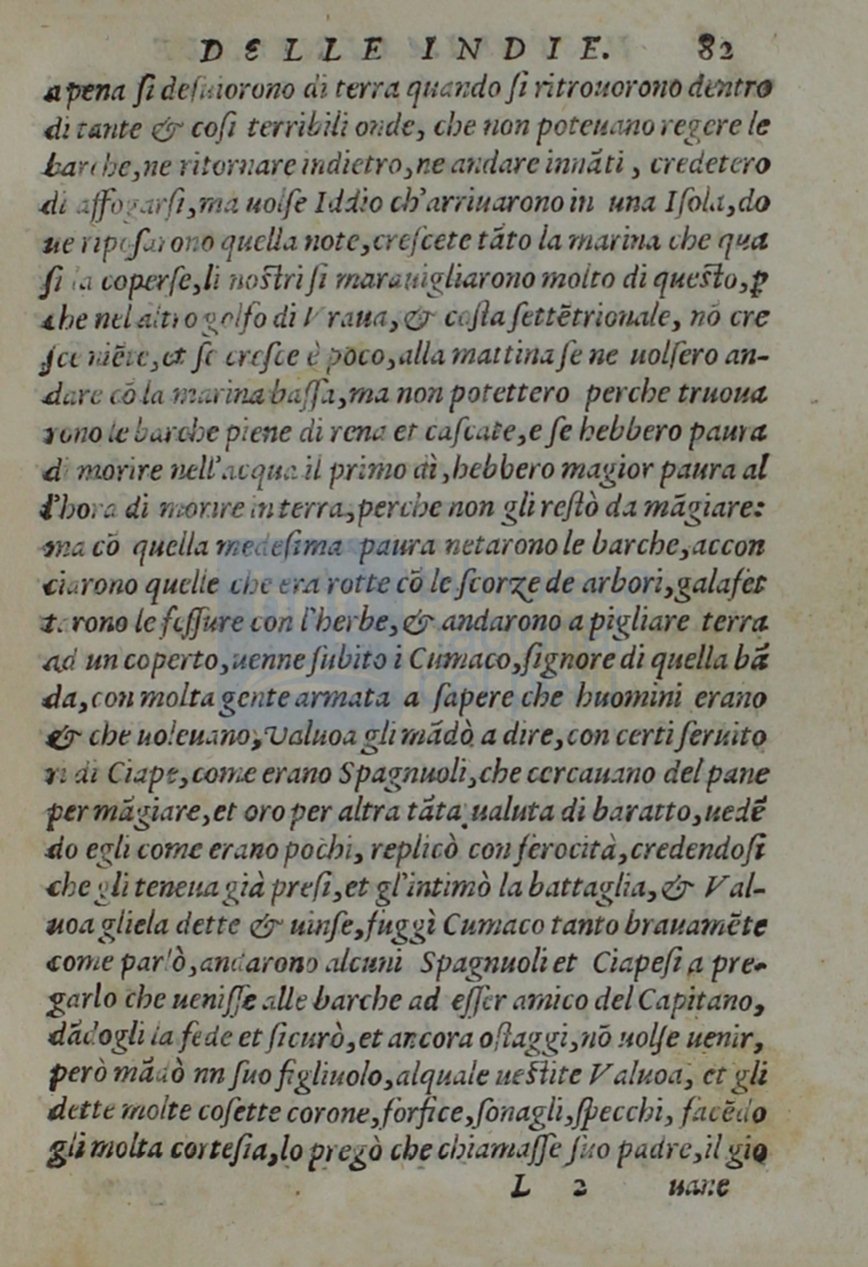 DELLE INDIE. 82
apena ſi deſuiorono di terra quando ſi ritrouorono dentro
di tante & coſi terribili onde, che non poteuano regere le
barche,ne ritornare indietro,ne andare innãti , credetero
di affogarſi,ma uolſe Iddio ch'arriuarono in una Iſola,do
ue ripoſarono quella note,creſcete tãto la marina che qua
ſi la coperſe,li noſtri ſi marauigliarono molto di queſto,ꝑ
che nel altro golfo di Vraua,& coſta ſettẽtrionale, nõ cre
ſce niẽte,et ſe creſce è poco,alla mattina ſe ne uolſero an-
dare cõ la marina baſſa,ma non potettero perche truoua
rono le barche piene di rena et caſcate,e ſe hebbero paura
di morire nell'acqua il primo dì,hebbero magior paura al
l'hora di morire in terra,perche non gli reſtò da mãgiare:
ma cõ quella medeſima paura netarono le barche,accon
ciarono quelle che era rotte cõ le ſcorze de arbori,galafet
tarono le feſſure con l'herbe,& andarono a pigliare terra
ad un coperto,uenne ſubito i Cumaco,ſignore di quella bã
da,con molta gente armata a ſapere che huomini erano
& che uoleuano,Valuoa gli mãdò a dire,con certi ſeruito
ri di Ciape,come erano Spagnuoli,che cercauano del pane
per mãgiare,et oro per altra tãta ualuta di baratto,uedẽ
do egli come erano pochi, replicò con ferocità,credendoſi
che gli teneua già preſi,et gl'intimò la battaglia,& Val-
uoa gliela dette & uinſe,fuggì Cumaco tanto brauamẽte
come parlò,andarono alcuni Spagnuoli et Ciapeſi a pre-
garlo che ueniſſe alle barche ad eſſer amico del Capitano,
dãdogli la fede et ſicurò,et ancora oſtaggi,nõ uolſe uenir,
però mãdò nn ſuo figliuolo,alquale ueſtite Valuoa, et gli
dette molte coſette corone,forfice,ſonagli,ſpecchi, facẽdo
gli molta corteſia,lo pregò che chiamaſſe ſuo padre,il gio
L 2 uane